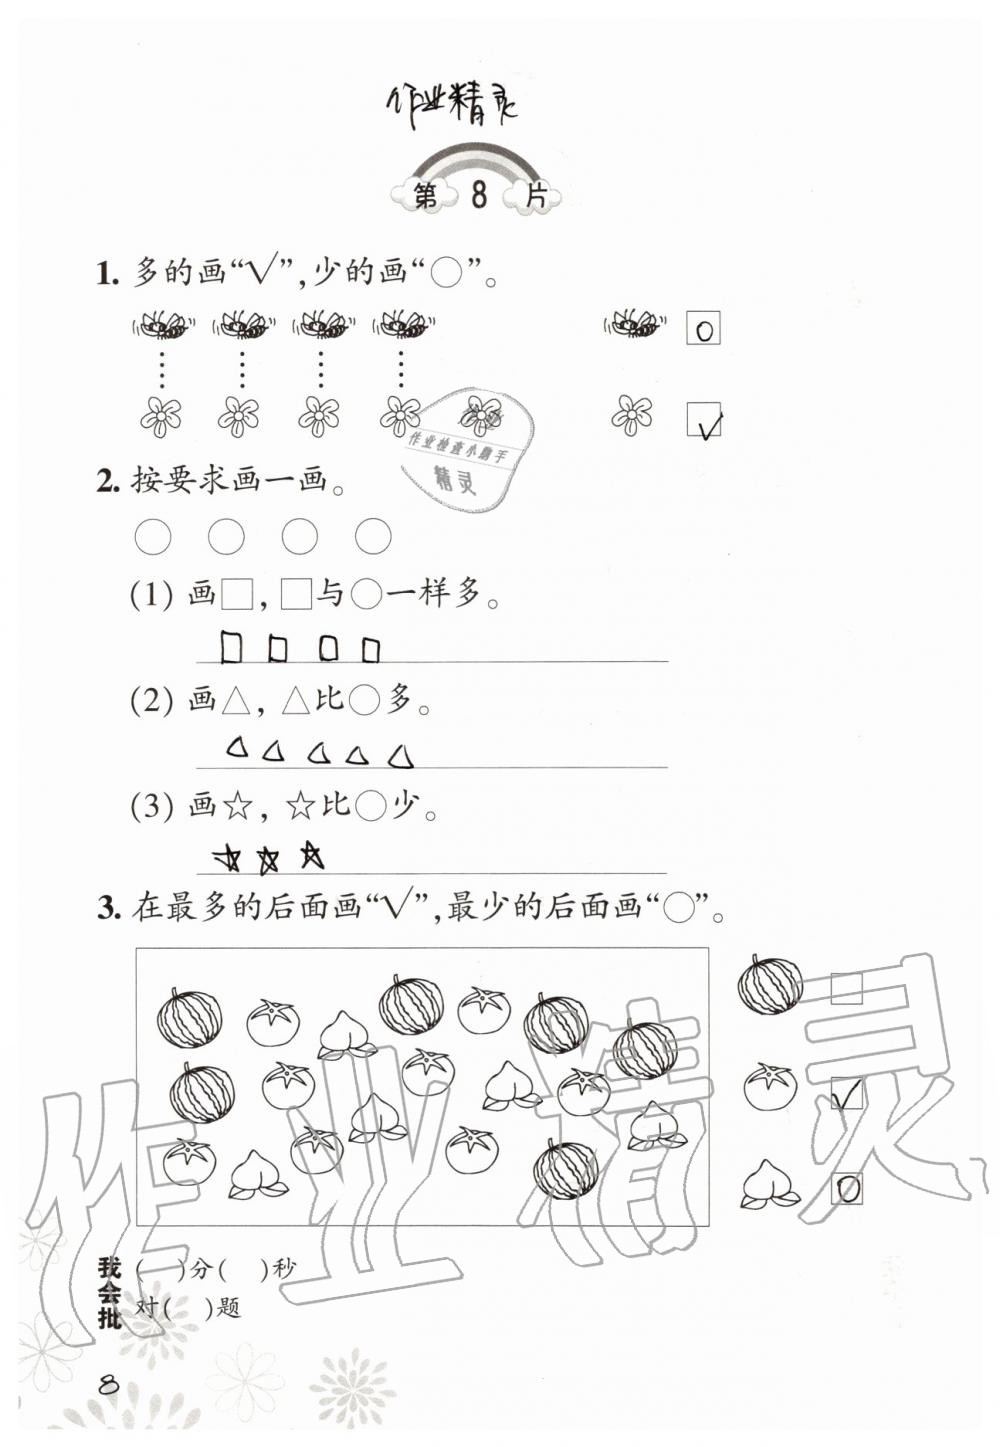 作业精灵
第 8 片
1. 多的画“√”,少的画“○”。
作业检查小助手
精灵
2. 按要求画一画。
(1) 画□, □与○一样多。
(2) 画△, △比○多。
(3) 画☆, ☆比○少。
3. 在最多的后面画“√”,最少的后面画“○”。
作业精灵
我会批
( )分( )秒
对( )题
8